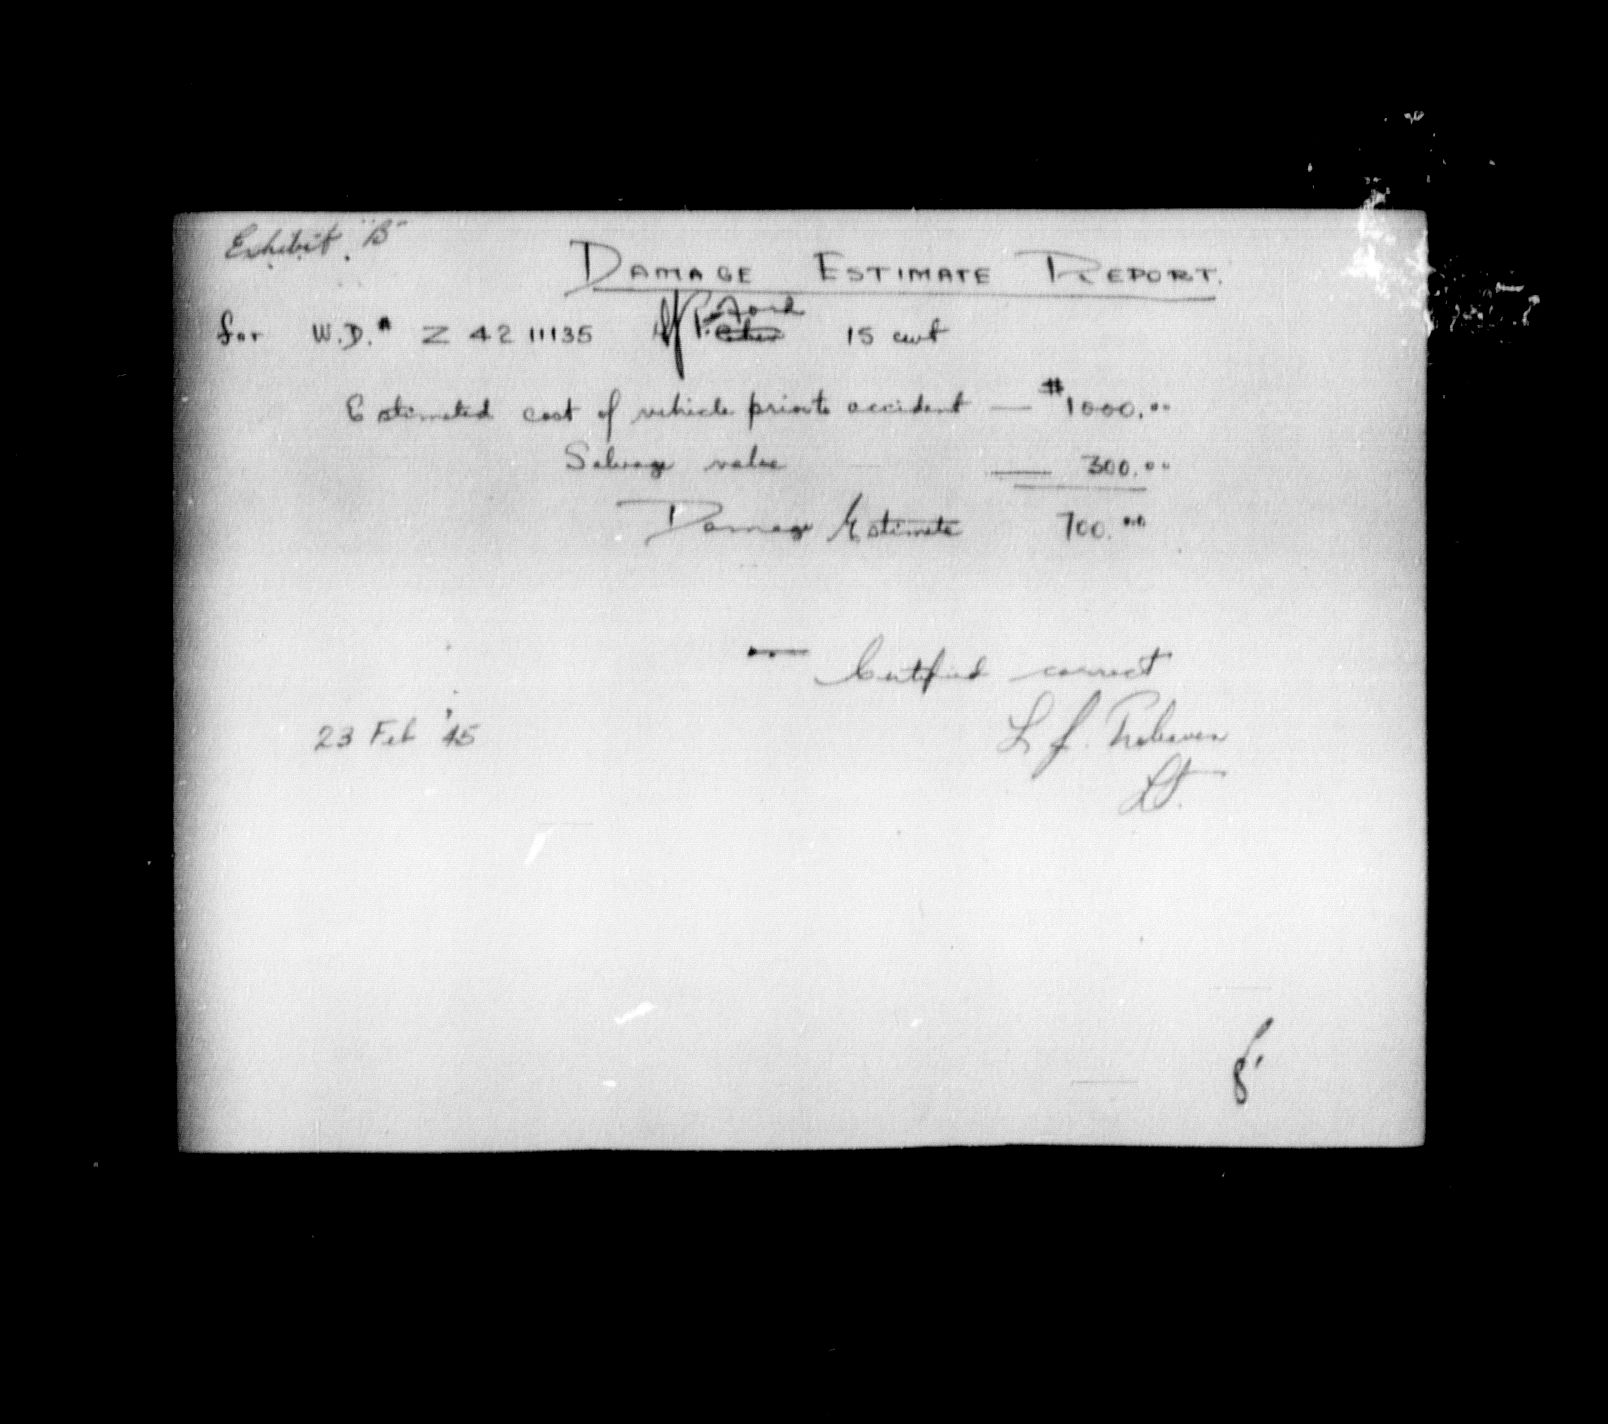 Exhibit "B"
DAMAGE ESTIMATE REPORT.
for W.D.# Z 42 11135 Ford 15 cwt
Estimated cost of vehicle prior to accident — $1000.00
Salvage value — 300.00
Damage Estimate 700.00
Certified correct
23 Feb '45
L J. Treleaven
Lt.
8